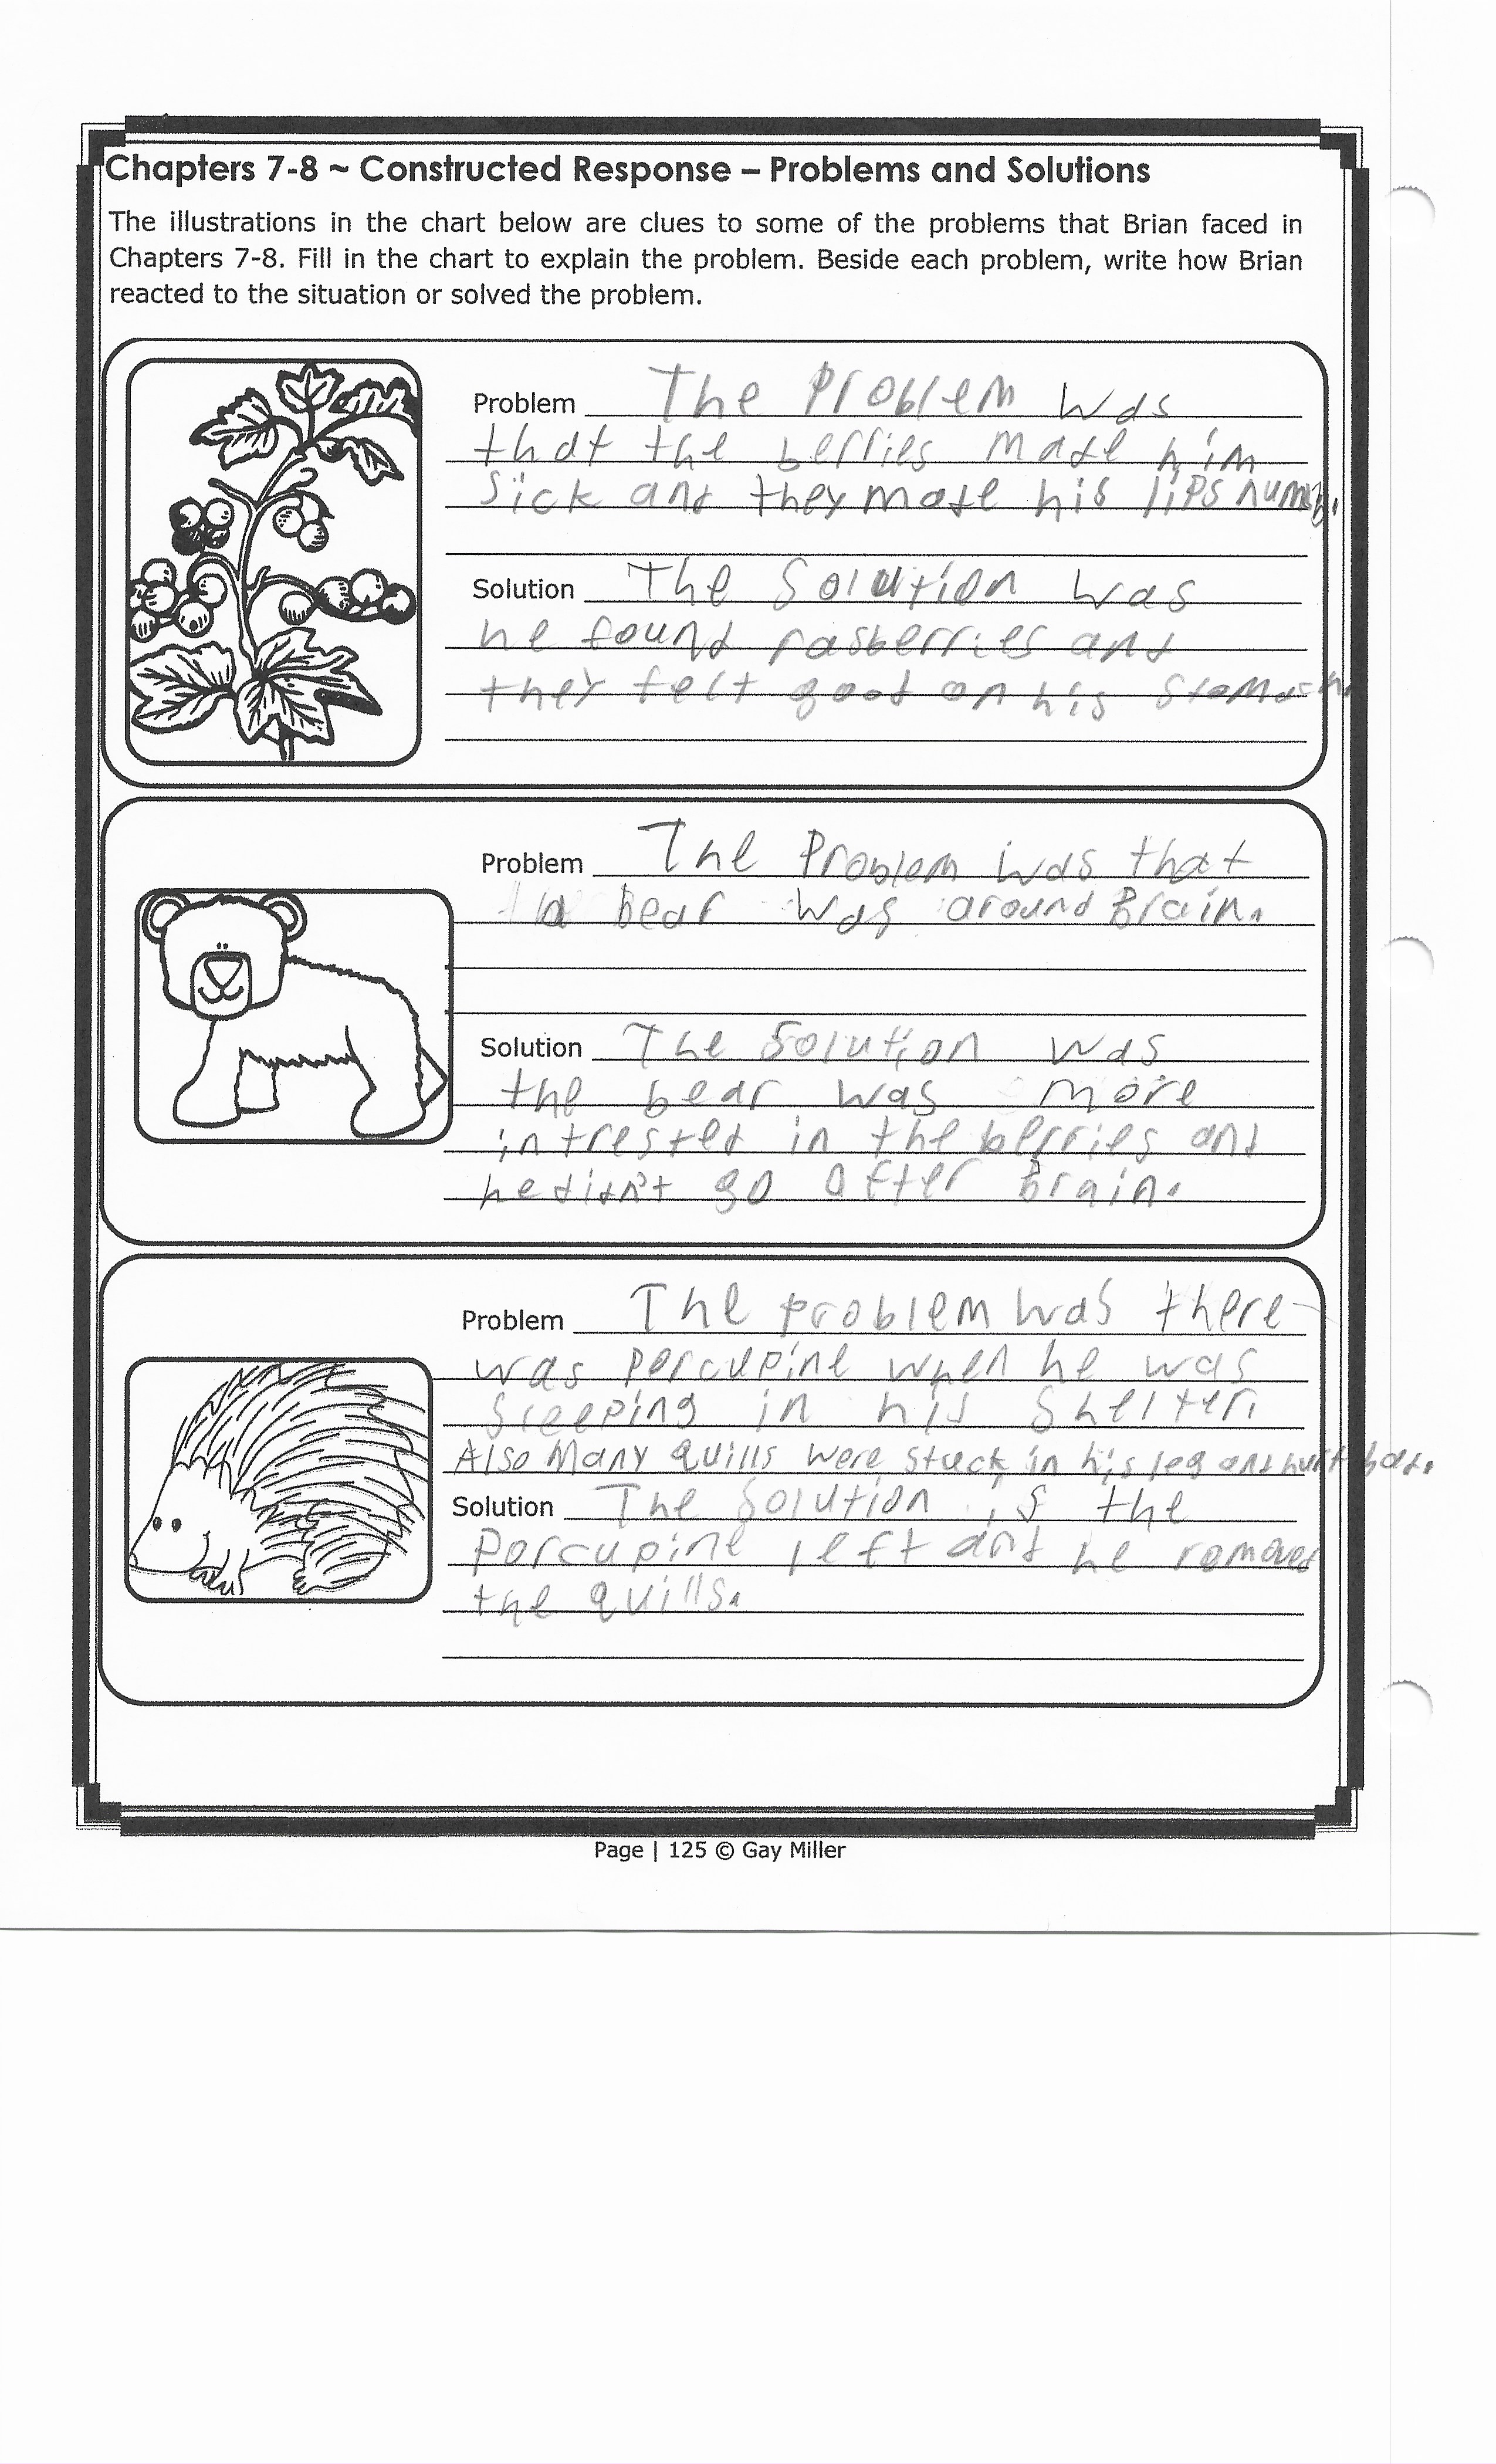 Chapters 7-8 ~ Constructed Response – Problems and Solutions
The illustrations in the chart below are clues to some of the problems that Brian faced in
Chapters 7-8. Fill in the chart to explain the problem. Beside each problem, write how Brian
reacted to the situation or solved the problem.
Problem The Problem was
that the berries made him
sick and they made his lips numb.
Solution The Solution was
he found rasberries and
they felt good on his stomach.
Problem The Problem was that
a bear was around Brain.
Solution The Solution was
the bear was more
intrested in the berries and
he didn't go after Brain.
Problem The problem was there
was porcupine when he was
sleeping in his shelter.
Also Many quills were stuck in his leg and hurt bad.
Solution The Solution is the
porcupine left and he removed
the quills.
Page | 125 © Gay Miller